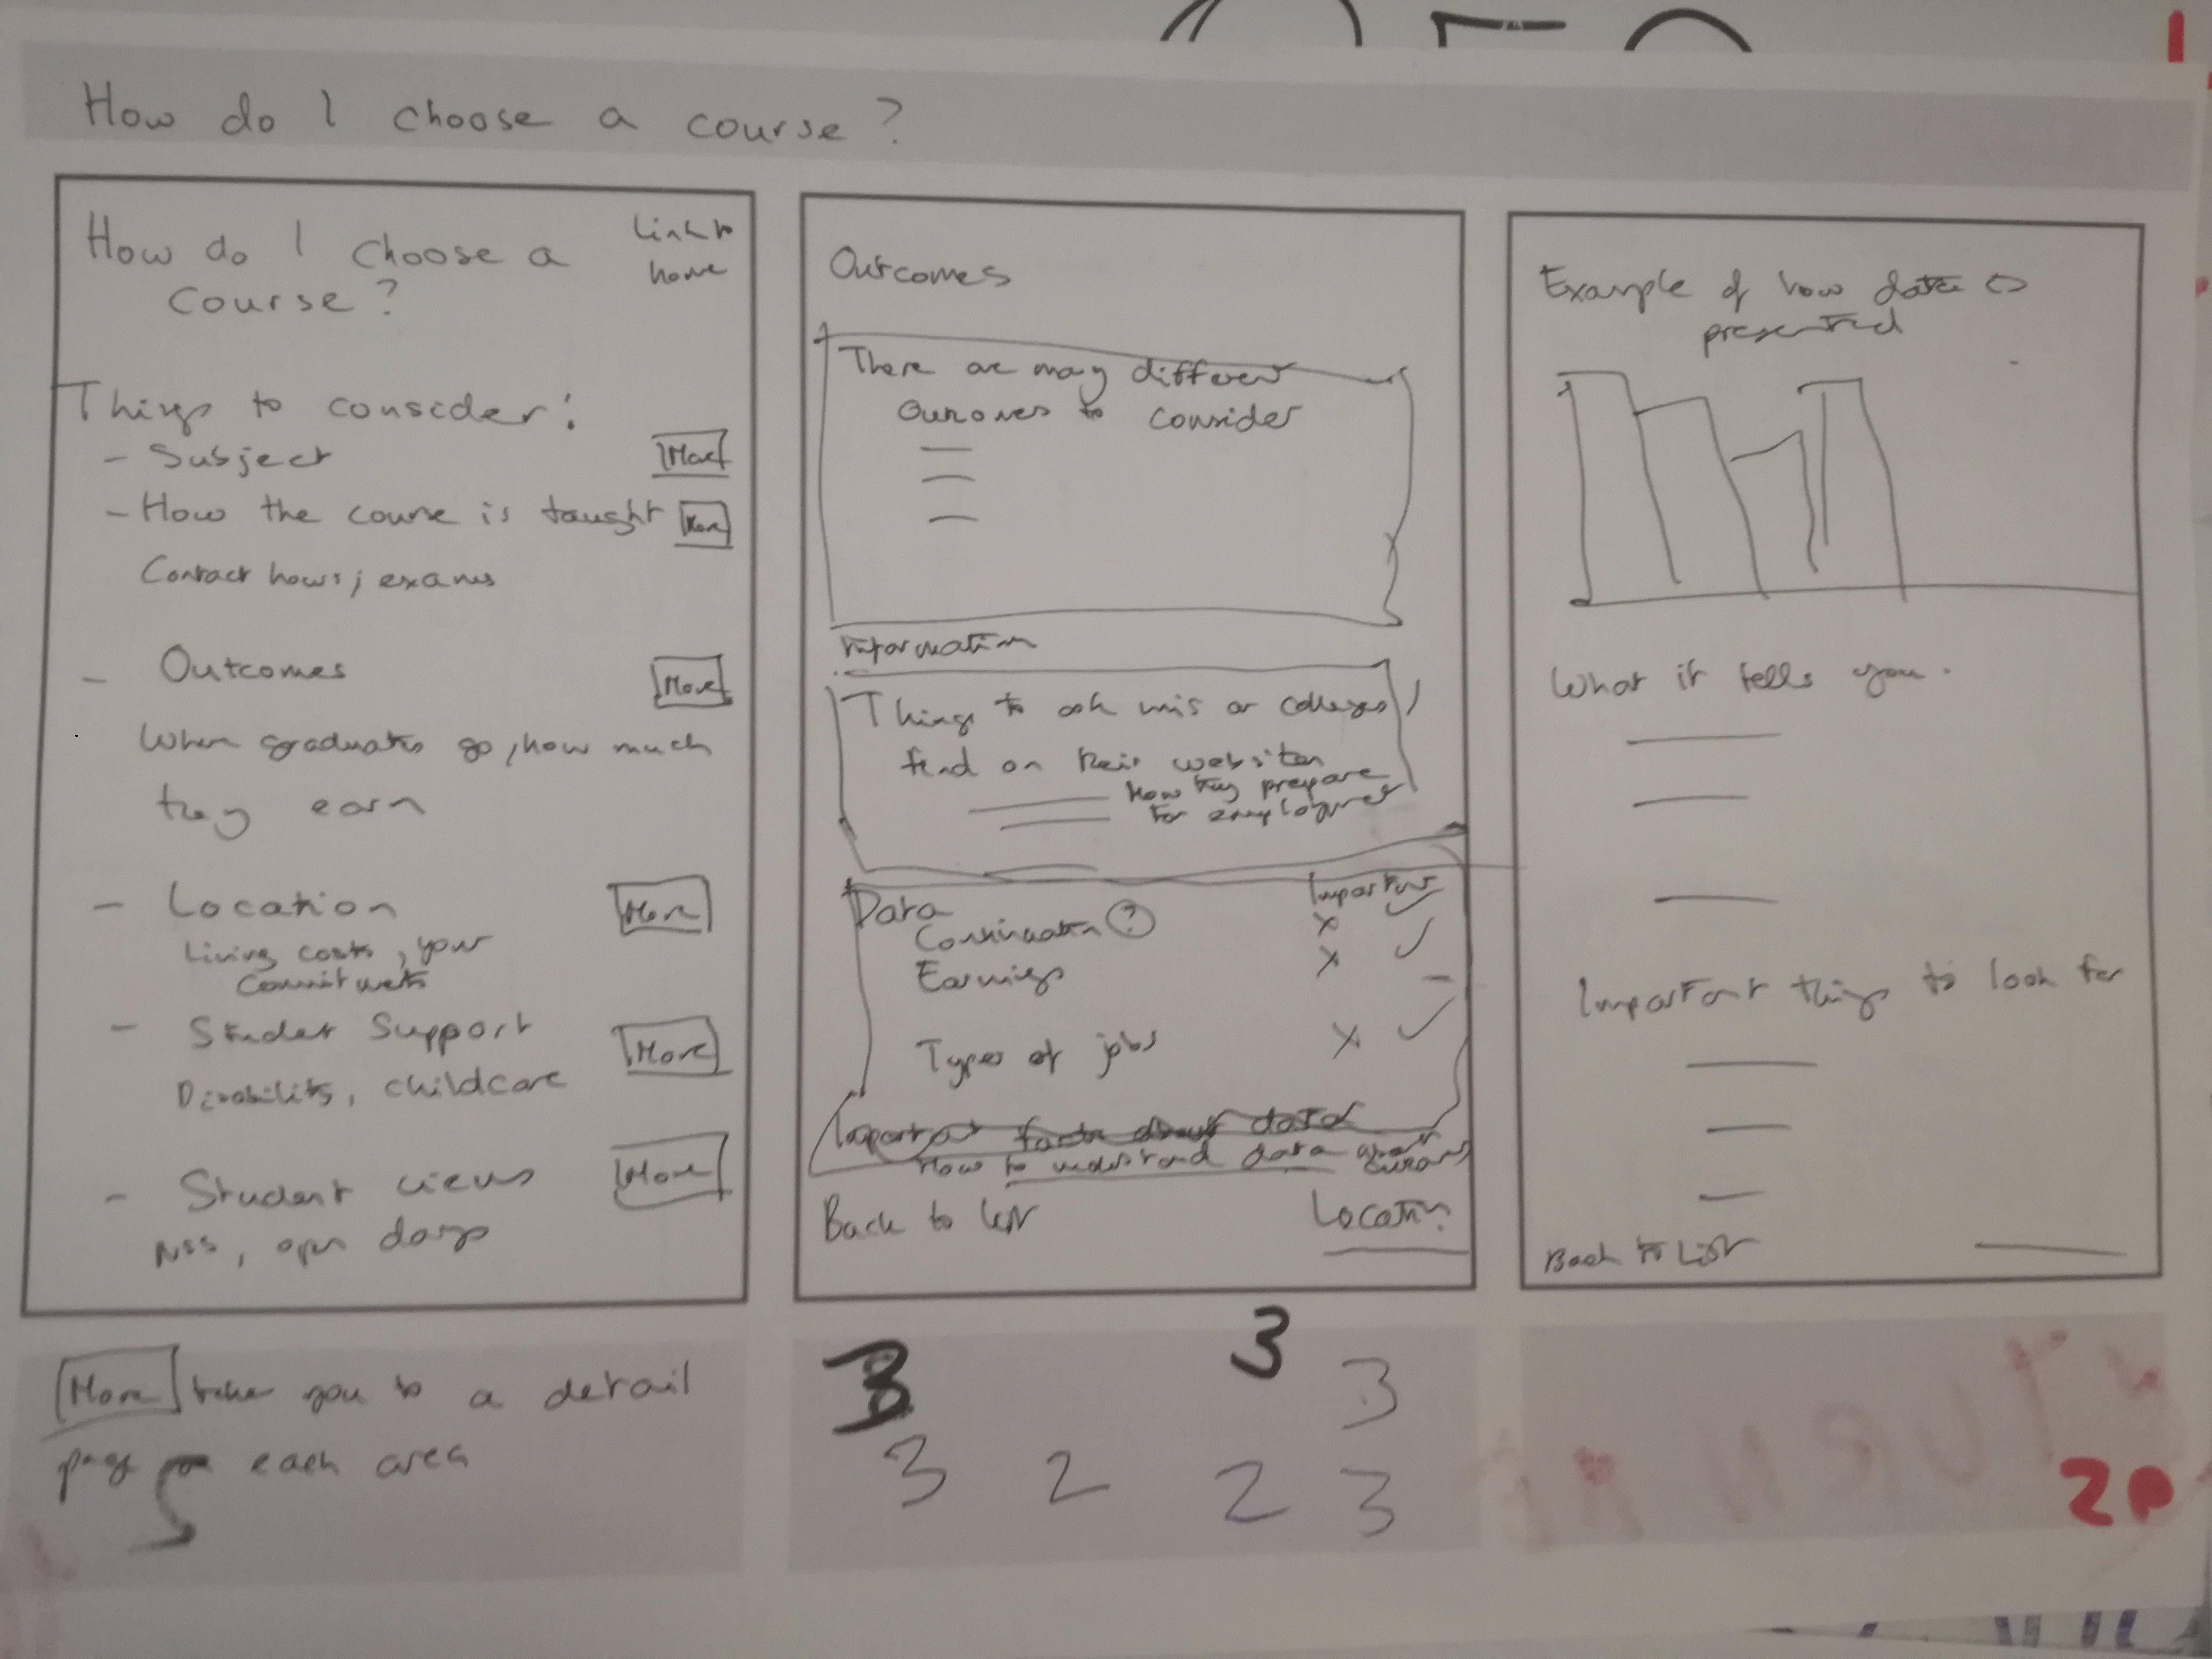 How do I choose a course?
How do I choose a
course?
Link to
home
Things to consider:
- Subject More
- How the course is taught More
Contact hours; exams
- Outcomes More
Where graduates go, how much
they earn
- Location More
Living costs, your
commitments
- Student Support More
Disability, childcare
- Student views More
NSS, open days
More takes you to a detail
page for each area
Outcomes
There are many different
outcomes to consider
Information
Things to ask unis or colleges /
find on their websites
How they prepare
for employment
Data Important
Continuation ? x ✓
Earnings x ✓
–
Types of jobs x ✓
Important facts about data
How to understand data about
Back to list Location
3 3 3
3 2 2 3
Example of how data is
presented
What it tells you.
Important things to look for
Back to List
2P